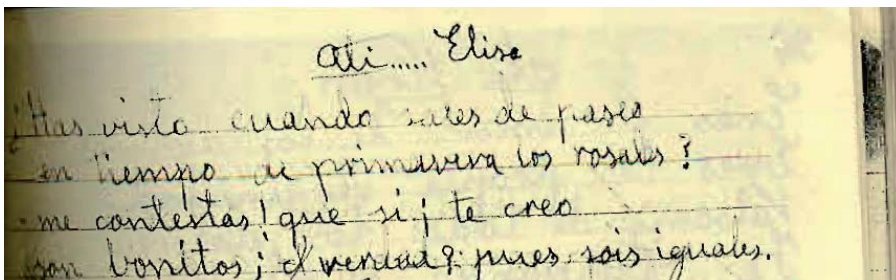 Ati..... Elisa
¿Has visto cuando sales de paseo
en tiempo de primavera los rosales?
me contestas! que si¡ te creo
son bonitos; ¿verdad? pues sois iguales.